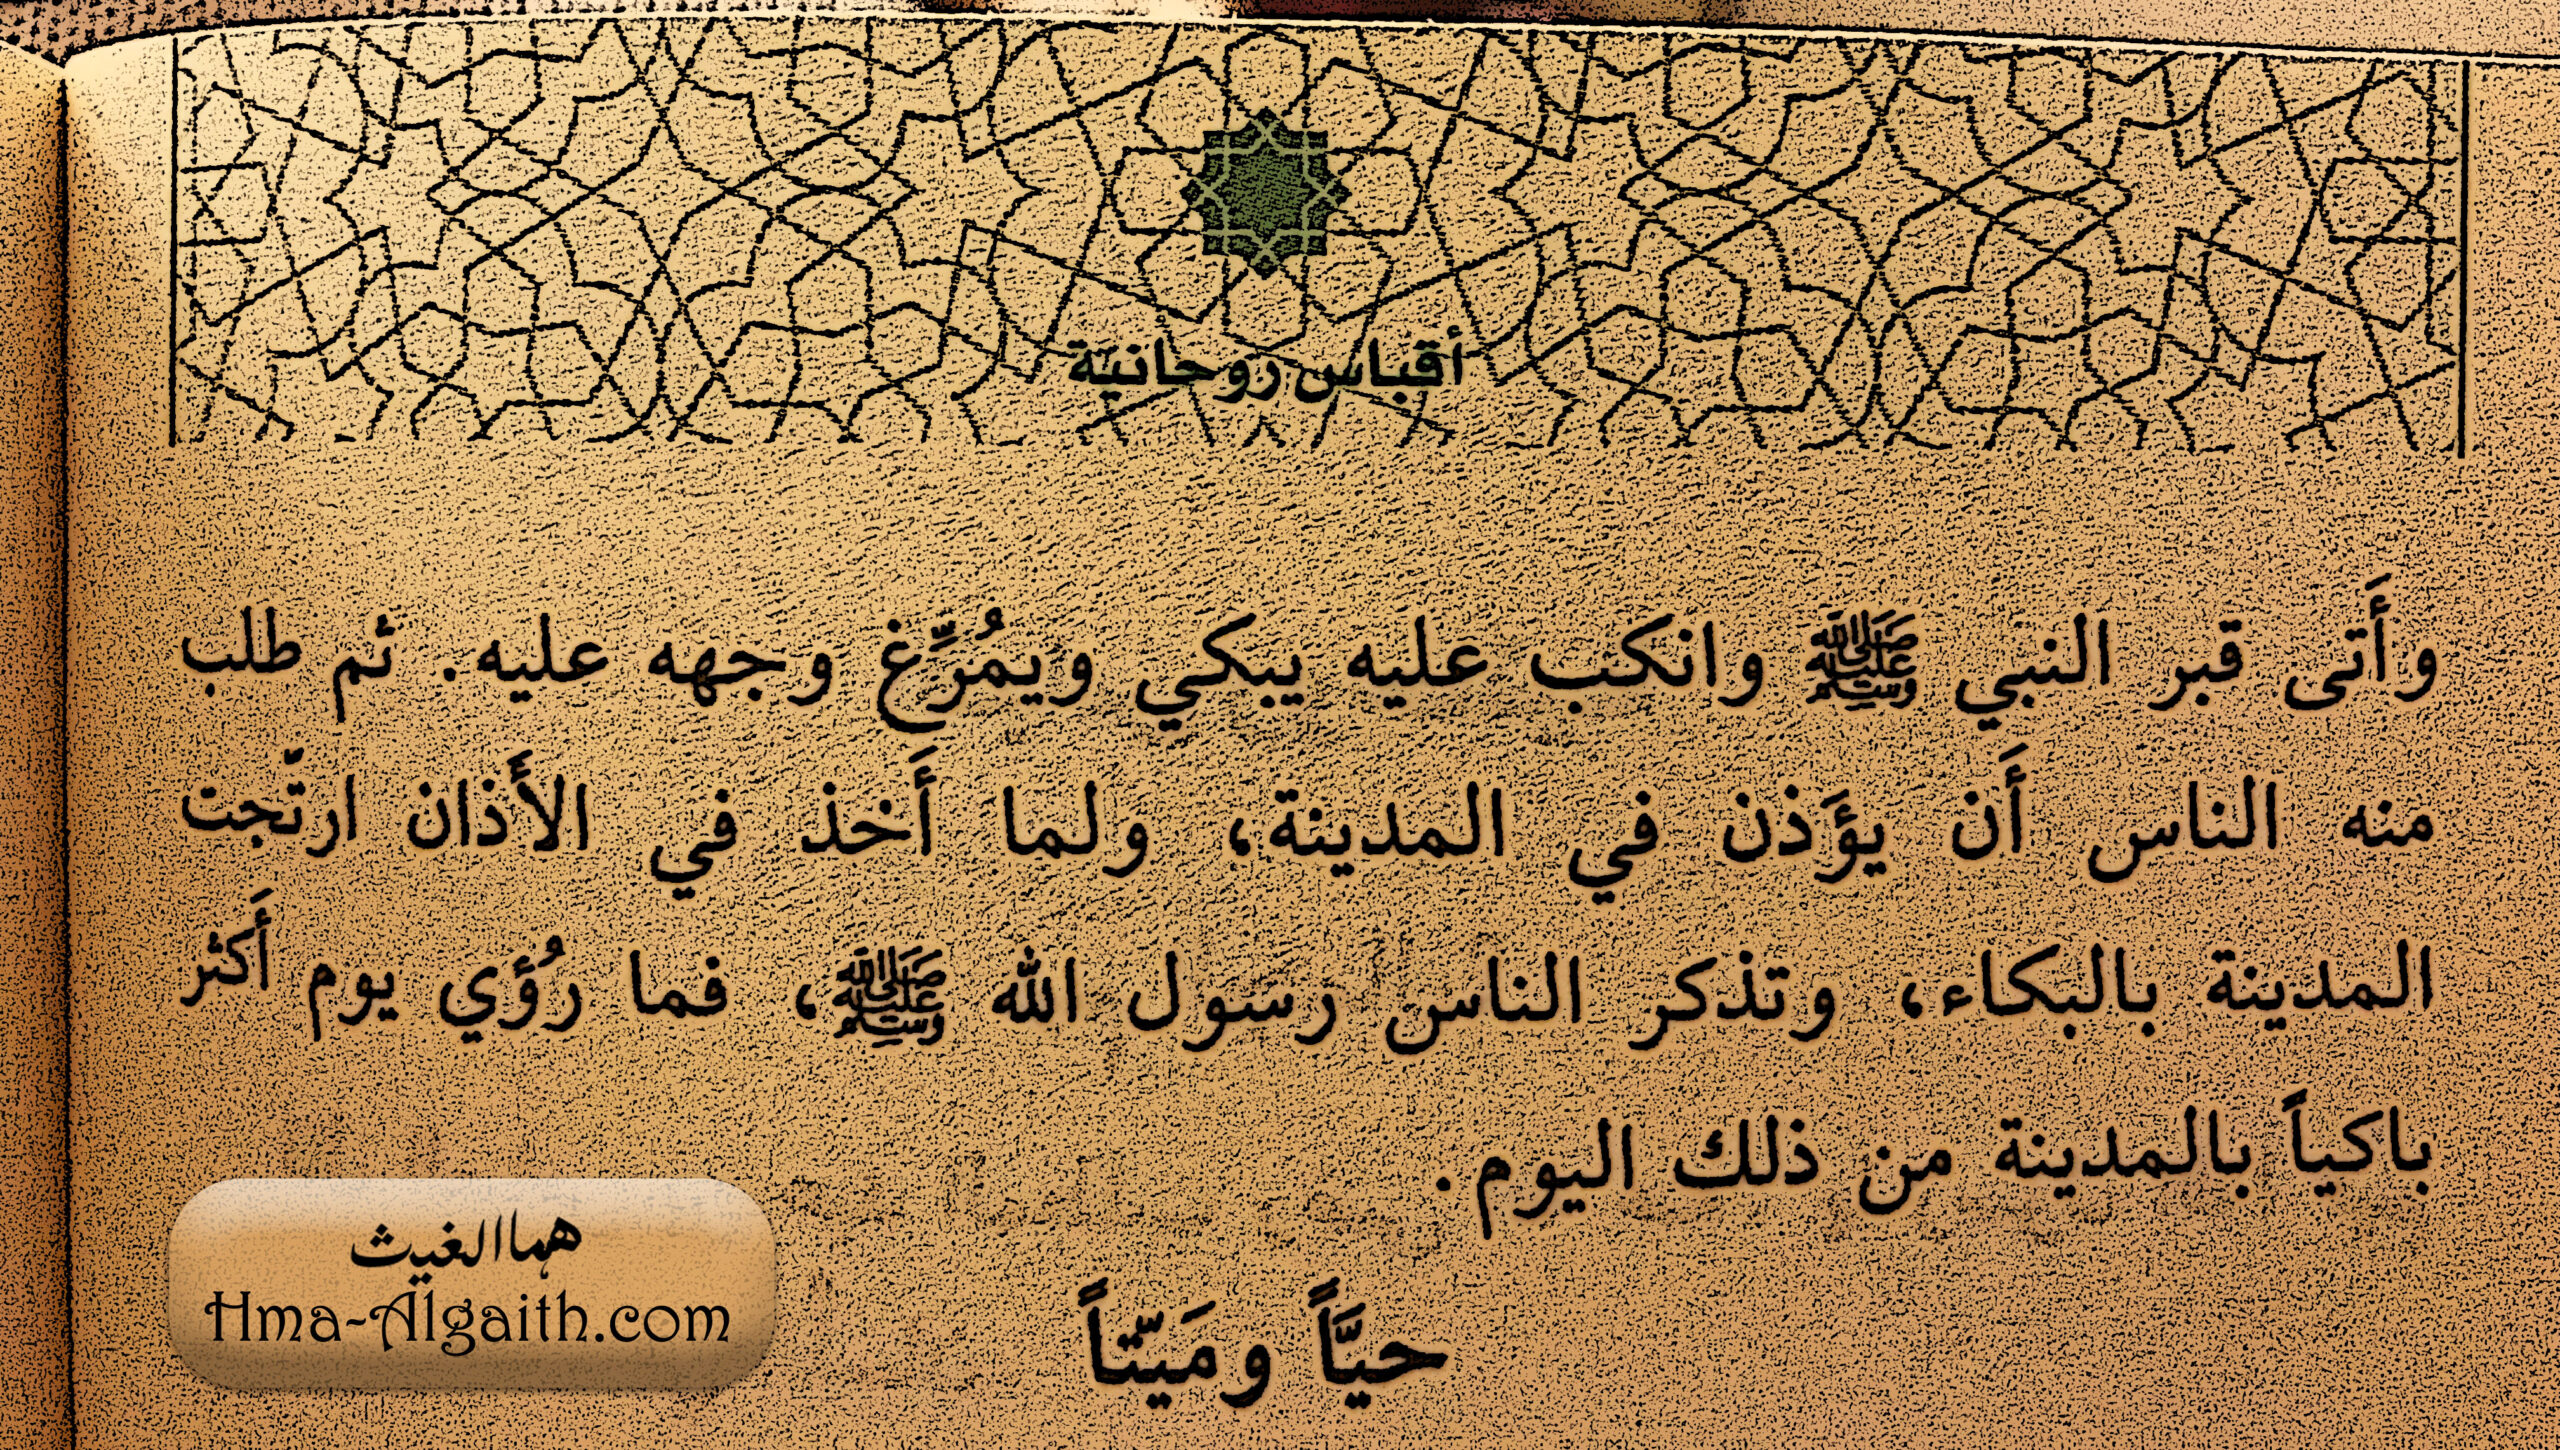 أقباس روحانية
وأَتى قبر النبي ﷺ وانكب عليه يبكي ويمُرِّغ وجهه عليه. ثم طلب
منه الناس أَن يؤَذن في المدينة، ولما أَخذ في الأَذان ارتّجت
المدينة بالبكاء، وتذكر الناس رسول الله ﷺ، فما رُؤي يوم أَكثر
باكياً بالمدينة من ذلك اليوم.
حيَّاً ومَيّتاً
هما الغيث
Hma-Algaith.com